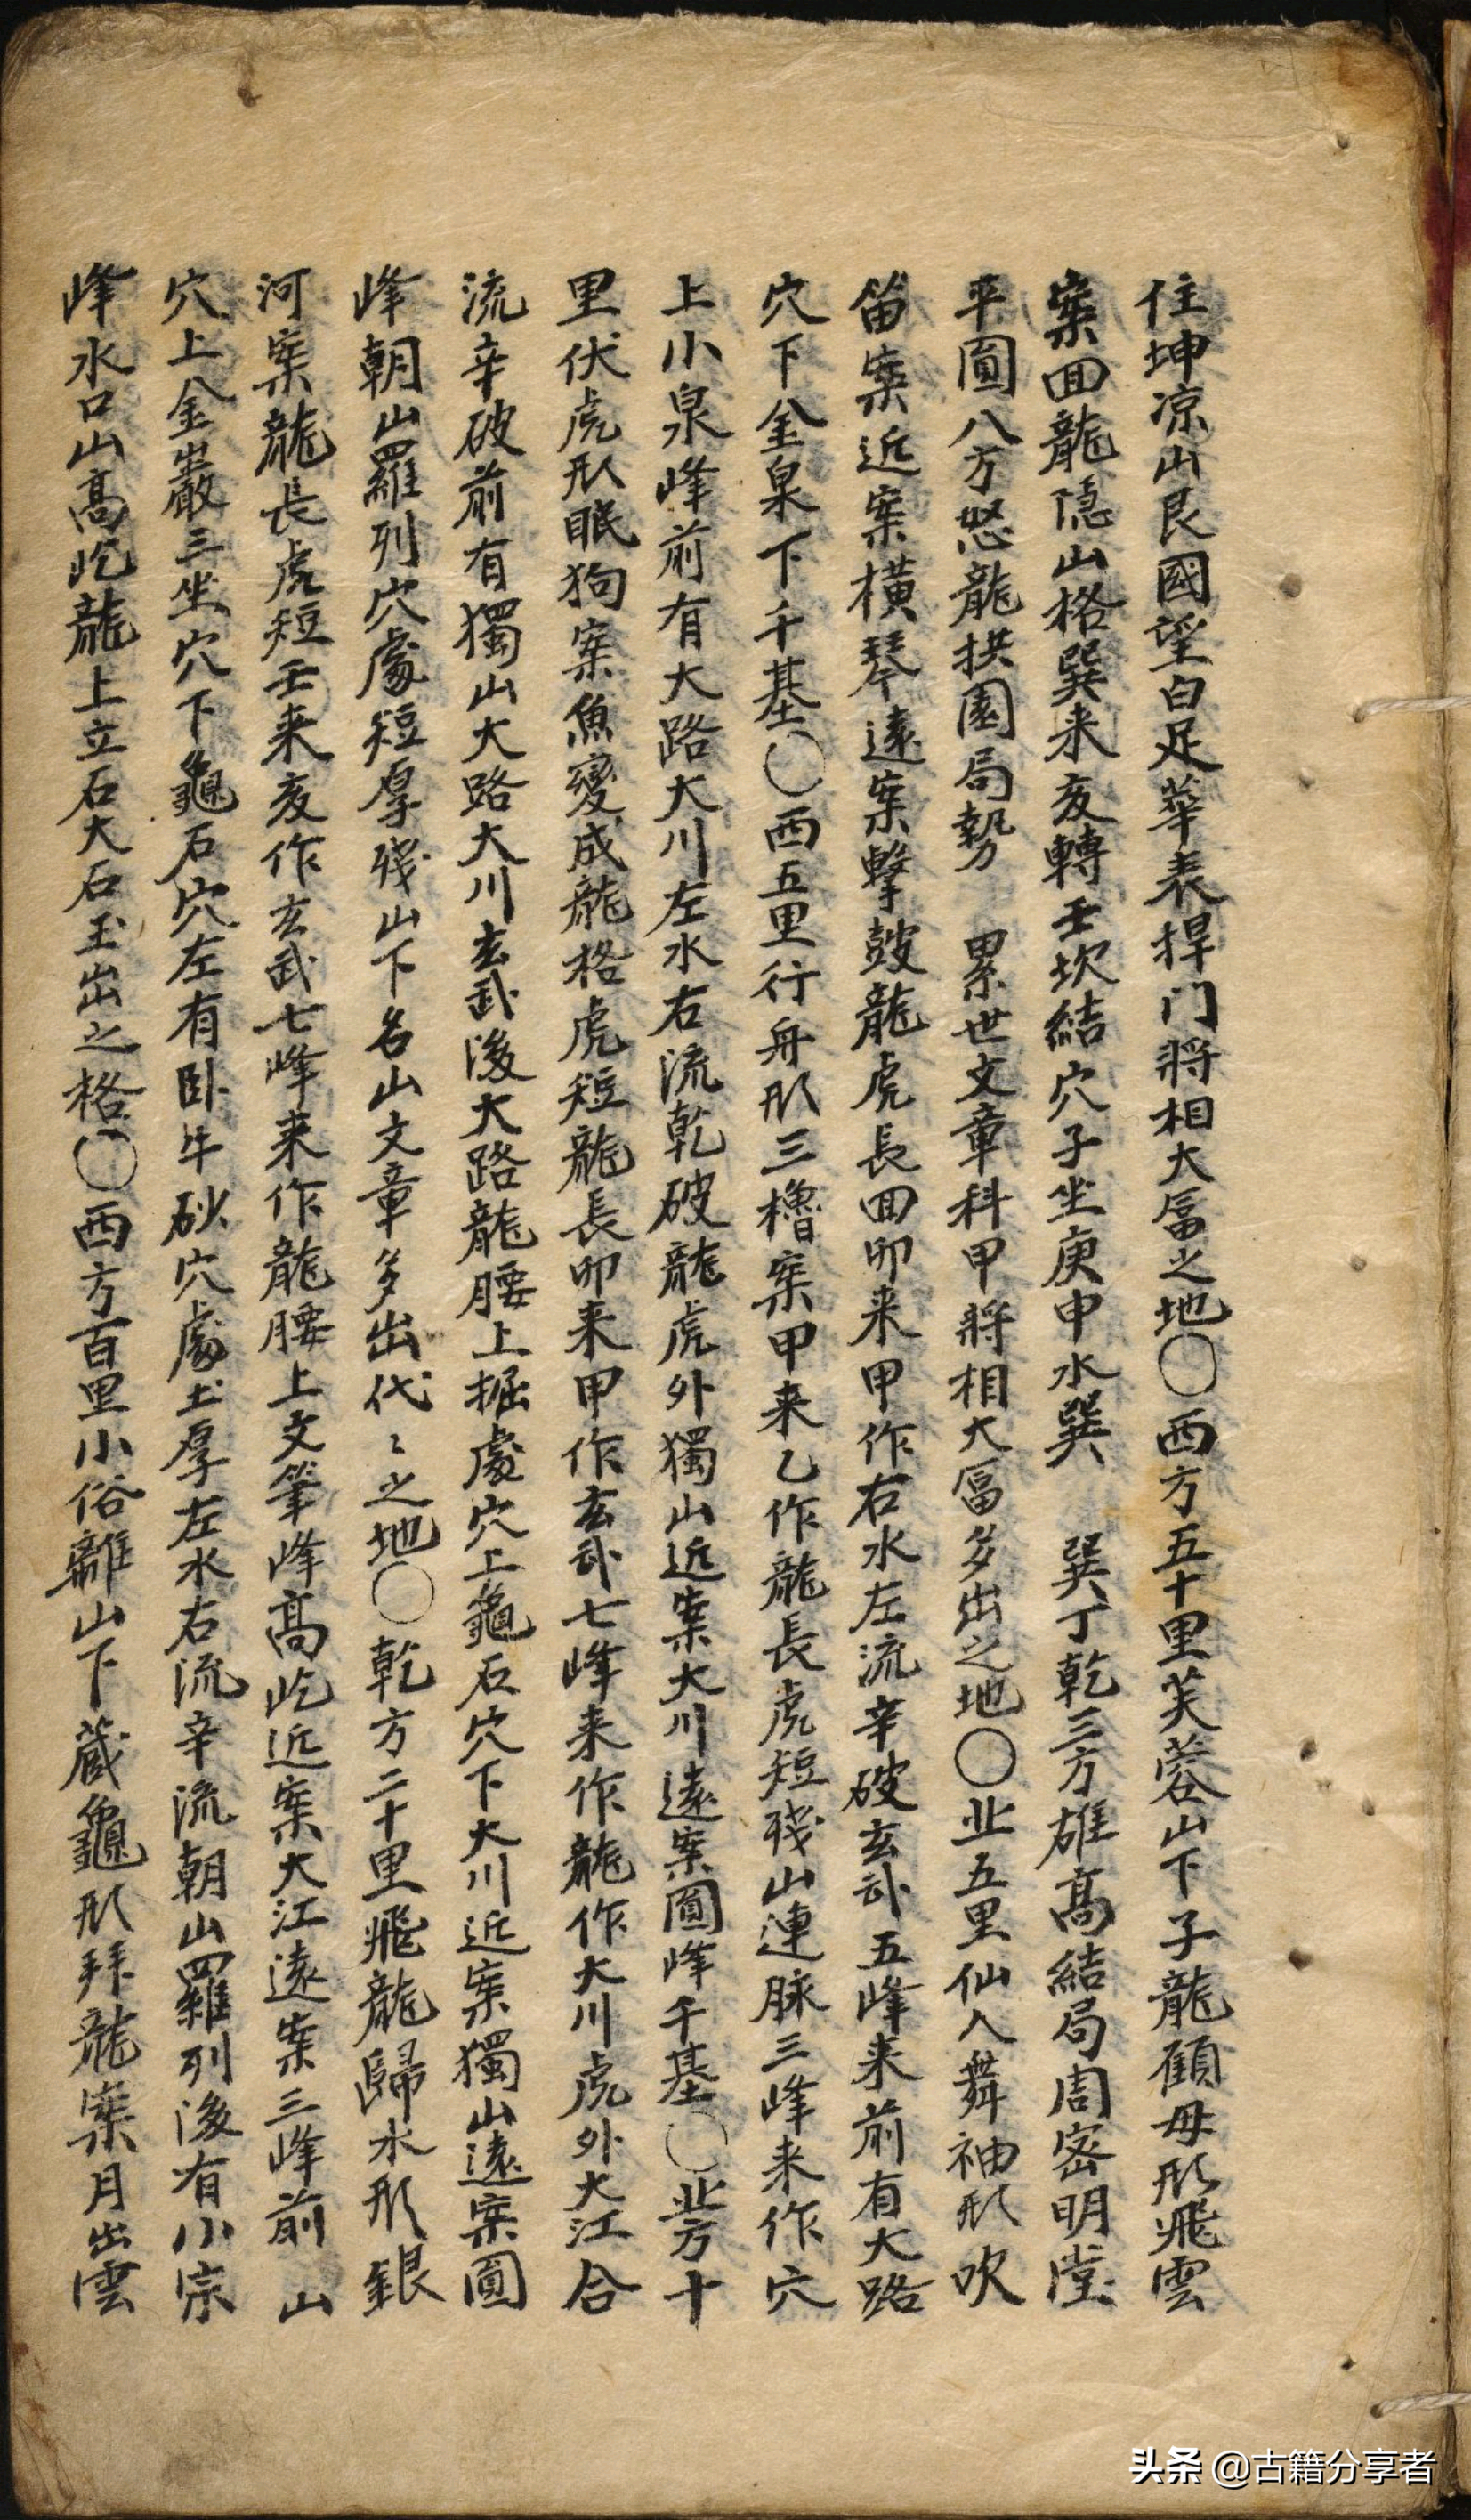 住坤凉山艮國望白足華表捍门將相大富之地〇西方五十里芙蓉山下子龍顧母形飛雲
案回龍隠山格巽来亥轉壬坎結穴子坐庚申水巽 巽丁乾三方雄髙結局周密明堂
平圓八方怒龍拱園局勢 累世文章科甲將相大富多出之地〇北五里仙人舞袖形吹
笛案近案橫琴遠案擊鼓龍虎長回卯来甲作右水左流辛破玄武五峰来前有大路
穴下金泉下千基〇西五里行舟形三櫓案甲来乙作龍長虎短殘山連脉三峰来作穴
上小泉峰前有大路大川左水右流乾破龍虎外獨山近案大川遠案圓峰千基〇北方十
里伏虎形眠狗案魚變成龍格虎短龍長卯来甲作玄武七峰来作龍作大川虎外大江合
流辛破前有獨山大路大川玄武後大路龍腰上掘處穴上龜石穴下大川近案獨山遠案圓
峰朝山羅列穴處短厚殘山下名山文章多出代〻之地〇乾方二十里飛龍歸水形銀
河案龍長虎短壬来亥作玄武七峰来作龍腰上文筆峰髙屹近案大江遠案三峰前 山
穴上金巖三坐穴下龜石穴左有卧牛砂穴處土厚左水右流辛流朝山羅列後有小宗
峰水口山髙屹龍上立石大石玉出之格〇西方百里小俗離山下蔵龜形拜龍案月出雲
头条 @古籍分享者